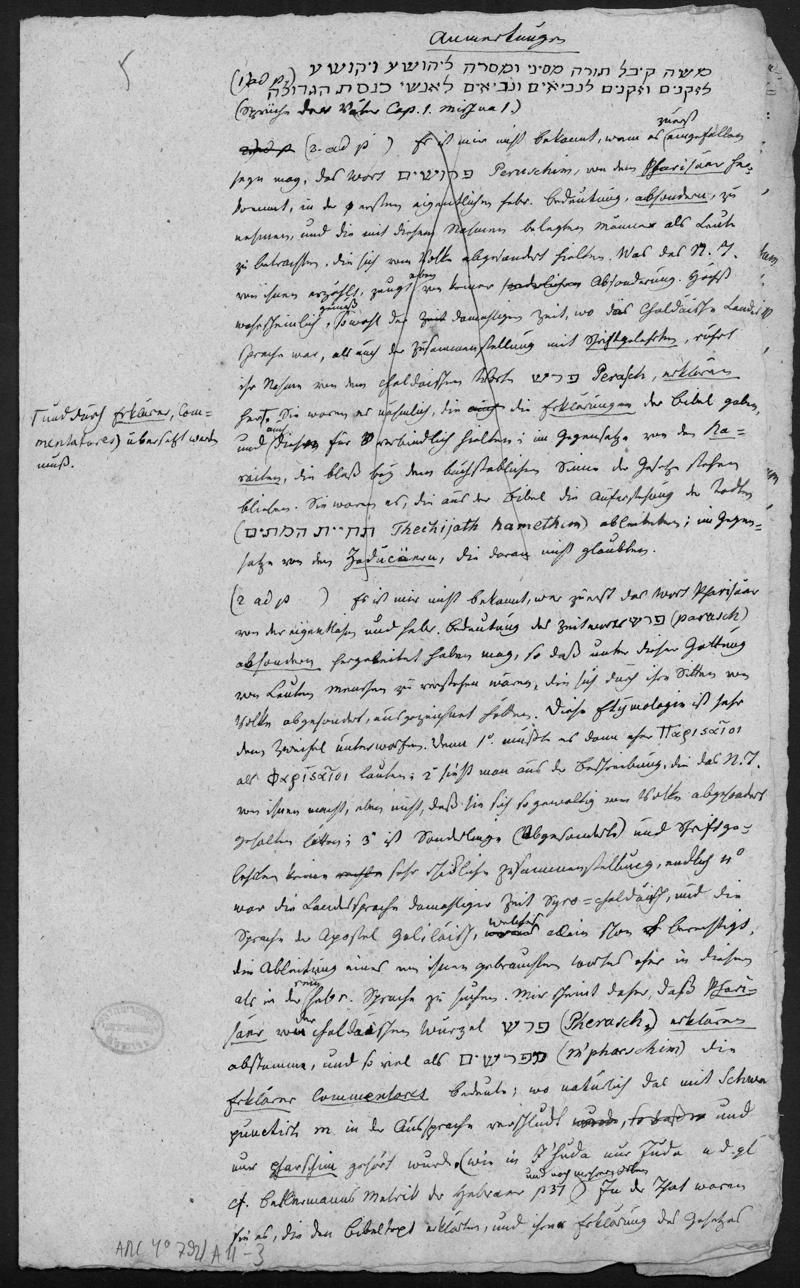 Anmerkungen
5
(1 ad p.) משה קיבל תורה מסיני ומסרה ליהושע ויהושע
לזקנים וזקנים לנביאים ונביאים לאנשי כנסת הגדולה
(Sprüche der Väter Cap. 1. Mischna 1.)
(2. ad p ) Es ist mir nicht bekannt, wem es zuerst eingefallen
seyn mag, das Wort פרושים Peruschim, von dem Pharisäer her-
kommt, in der ersten eigentlichen hebr. Bedeutung, absondern, zu
nehmen, und die mit diesem Nahmen belegten Männer als Leute
zu betrachten, die sich vom Volke abgesondert hielten. Was das N. T.
von ihnen erzählt, zeugt eben von keiner sonderlichen Absonderung. Höchst
wahrscheinlich, gemäß sowohl der damahligen Zeit, wo das Chaldäische Landes
sprache war, als auch der Zusammenstellung mit Schriftgelehrten, rührt
ihr Nahme von dem chaldäischen Worte פרש Perasch, erklären
her. Sie waren es nähmlich, die auch die Erklärungen der Bibel gaben,
und diese auch für verbindlich hielten; im Gegensatze von den Ka-
raiten, die bloß bey dem buchstablichen Sinne der Gesetze stehen
blieben. Sie waren es, die aus der Bibel die Auferstehung der Todten
(תחיית המתים Thechijath hamethim) ableiteten; im Gegen-
satze von den Zaducäern, die daran nicht glaubten.
und durch Erklärer, (Com-
mentatores) übersetzt werden
muß.
(2 ad p ) Es ist mir nicht bekannt, wer zuerst das Wort Pharisäer
von der eigentlichen und hebr. Bedeutung des Zeitwortes פרש (parasch)
absondern hergeleitet haben mag, so daß unter dieser Gattung
von Leuten Menschen zu verstehen wären, die sich durch ihre Sitten vom
Volke abgesondert, ausgezeichnet hatten. Diese Etymologie ist sehr
dem Zweifel unterworfen. Denn 1° müßte es dann eher Παρισαῖοι
als Φαρισαῖοι lauten; 2° sieht man aus der Beschreibung, die das N. T.
von ihnen macht, eben nicht, daß sie sich so gewaltig vom Volke abgesondert
gehalten hätten; 3° ist Sonderlinge (Abgesonderte) und Schriftge-
lehrten keine sehr schickliche Zusammenstellung, endlich 4°
war die Landessprache damahliger Zeit Syro-chaldäisch, und die
Sprache der Apostel Galiläisch, welches allein schon berechtigt,
die Ableitung eines von ihnen gebrauchten Wortes eher in dieser
als in der rein hebr. Sprache zu suchen. Mir scheint daher, daß Phari-
säer von der chaldäischen Wurzel פרש (Pherasch) erklären
abstamme, und so viel als מפרשים (m'pharschim) die
Erklärer Commentores bedeute; wo natürlich das mit Schwa
punctirte m. in der Aussprache verschluckt wurde, und
nur pharschim gehört wurde (wie in J'huda nur Juda u. d. gl.
cf. Bellermanns Metrik der Hebräer p 37 und noch mehreren Orten) In der That waren
sie es, die den Bibeltext erklärten, und ihre Erklärung des Gesetzes
ARC 4° 792/A11-3